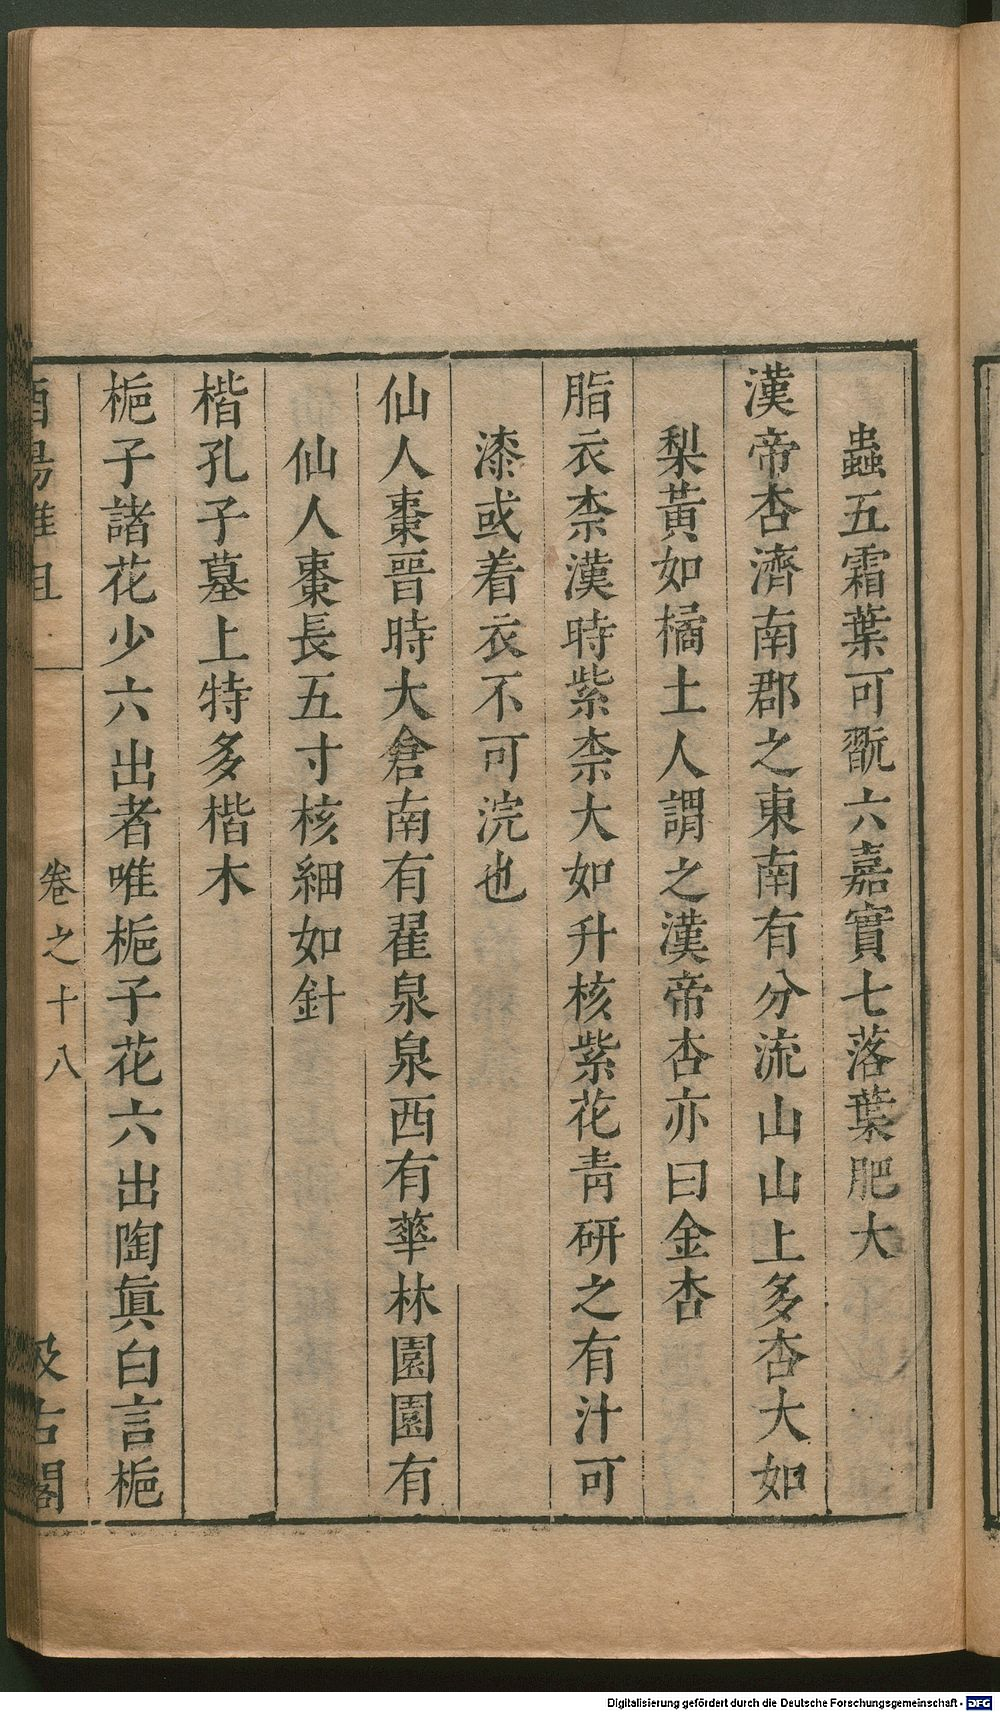 蟲五霜葉可翫六嘉實七落葉肥大
漢帝杏濟南郡之東南有分流山山上多杏大如
梨黃如橘土人謂之漢帝杏亦曰金杏
脂衣柰漢時紫柰大如升核紫花青研之有汁可
漆或着衣不可浣也
仙人棗晉時大倉南有翟泉泉西有華林園園有
仙人棗長五寸核細如針
楷孔子墓上特多楷木
梔子諸花少六出者唯梔子花六出陶眞白言梔
酉陽雜俎 卷之十八 汲古閣
Digitalisierung gefördert durch die Deutsche Forschungsgemeinschaft - DFG